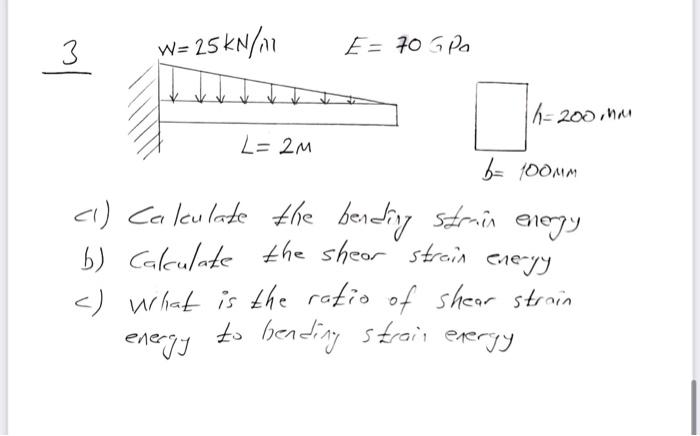 3 W= 25 kN/m E= 70 GPa
h= 200 mm
L= 2M
b= 100MM
a) Calculate the bending strain energy
b) Calculate the shear strain energy
c) What is the ratio of shear strain
energy to bending strain energy